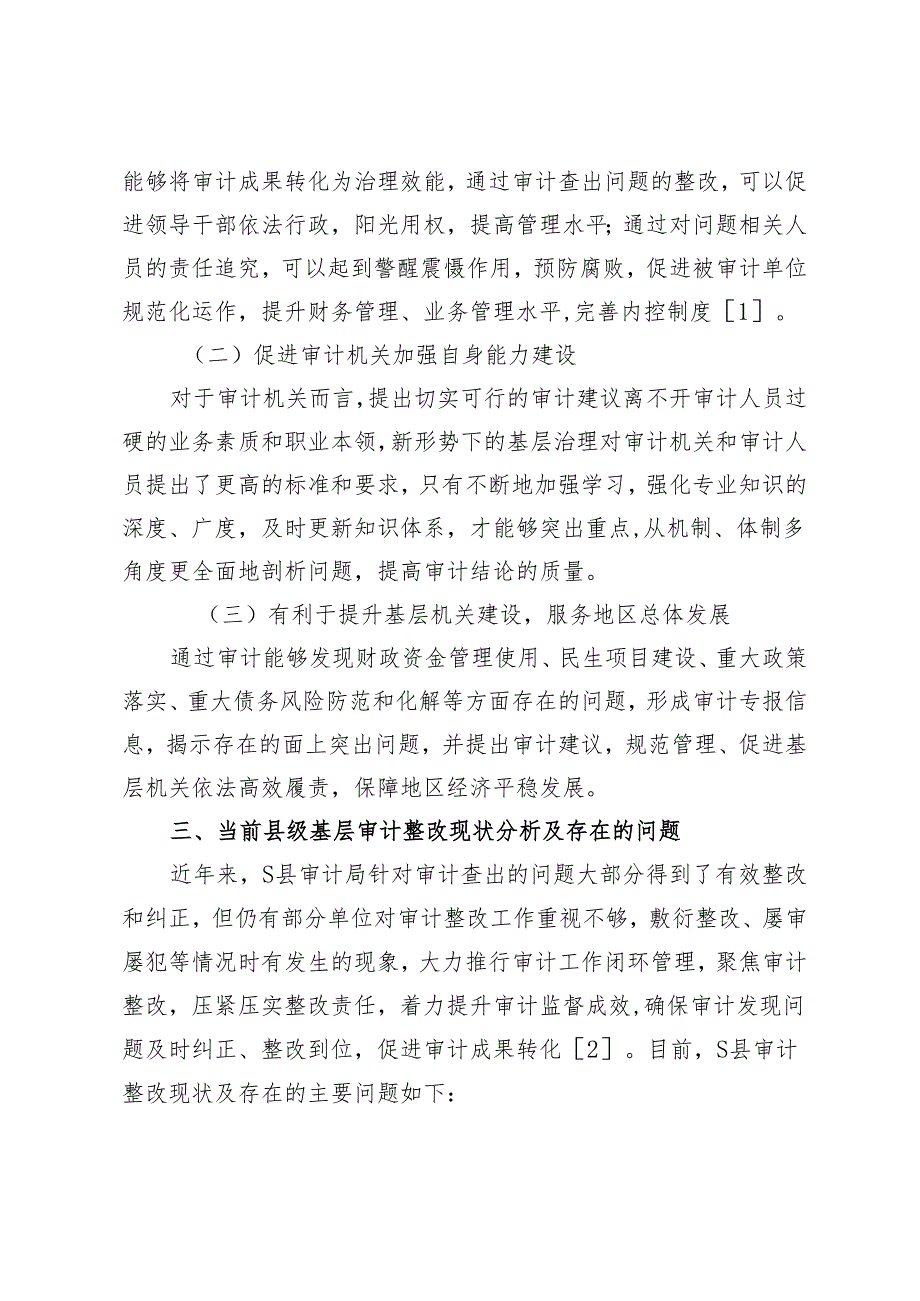 能够将审计成果转化为治理效能，通过审计查出问题的整改，可以促
进领导干部依法行政，阳光用权，提高管理水平；通过对问题相关人
员的责任追究，可以起到警醒震慑作用，预防腐败，促进被审计单位
规范化运作，提升财务管理、业务管理水平,完善内控制度［1］。
（二）促进审计机关加强自身能力建设
对于审计机关而言，提出切实可行的审计建议离不开审计人员过
硬的业务素质和职业本领，新形势下的基层治理对审计机关和审计人
员提出了更高的标准和要求，只有不断地加强学习，强化专业知识的
深度、广度，及时更新知识体系，才能够突出重点,从机制、体制多
角度更全面地剖析问题，提高审计结论的质量。
（三）有利于提升基层机关建设，服务地区总体发展
通过审计能够发现财政资金管理使用、民生项目建设、重大政策
落实、重大债务风险防范和化解等方面存在的问题，形成审计专报信
息，揭示存在的面上突出问题，并提出审计建议，规范管理、促进基
层机关依法高效履责，保障地区经济平稳发展。
三、当前县级基层审计整改现状分析及存在的问题
近年来，S县审计局针对审计查出的问题大部分得到了有效整改
和纠正，但仍有部分单位对审计整改工作重视不够，敷衍整改、屡审
屡犯等情况时有发生的现象，大力推行审计工作闭环管理，聚焦审计
整改，压紧压实整改责任，着力提升审计监督成效,确保审计发现问
题及时纠正、整改到位，促进审计成果转化［2］。目前，S县审计
整改现状及存在的主要问题如下：